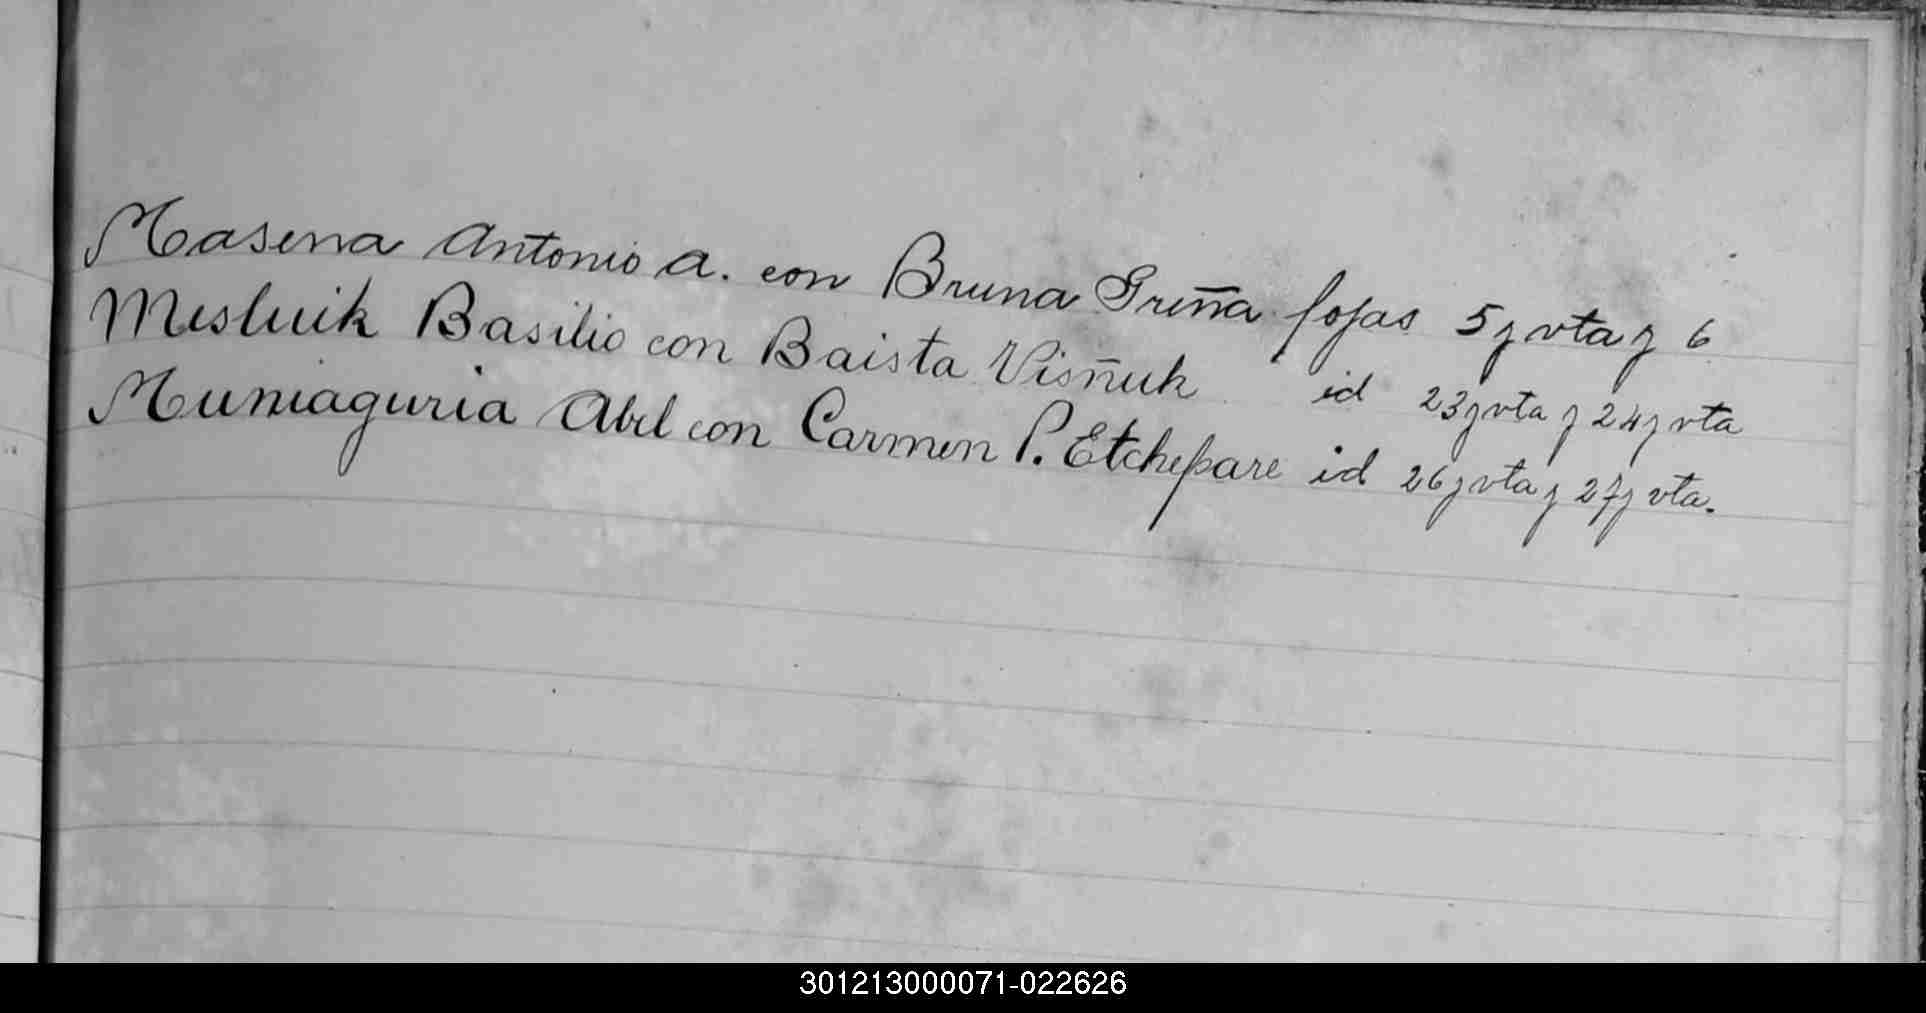 Masena Antonio A. con Bruna Greña fojas 5 y vta y 6
Mesluik Basilio con Baista Visñuk id 23 y vta y 24 y vta
Muniaguria Abel con Carmen P. Etchepare id 26 y vta y 27 y vta.
301213000071-022626